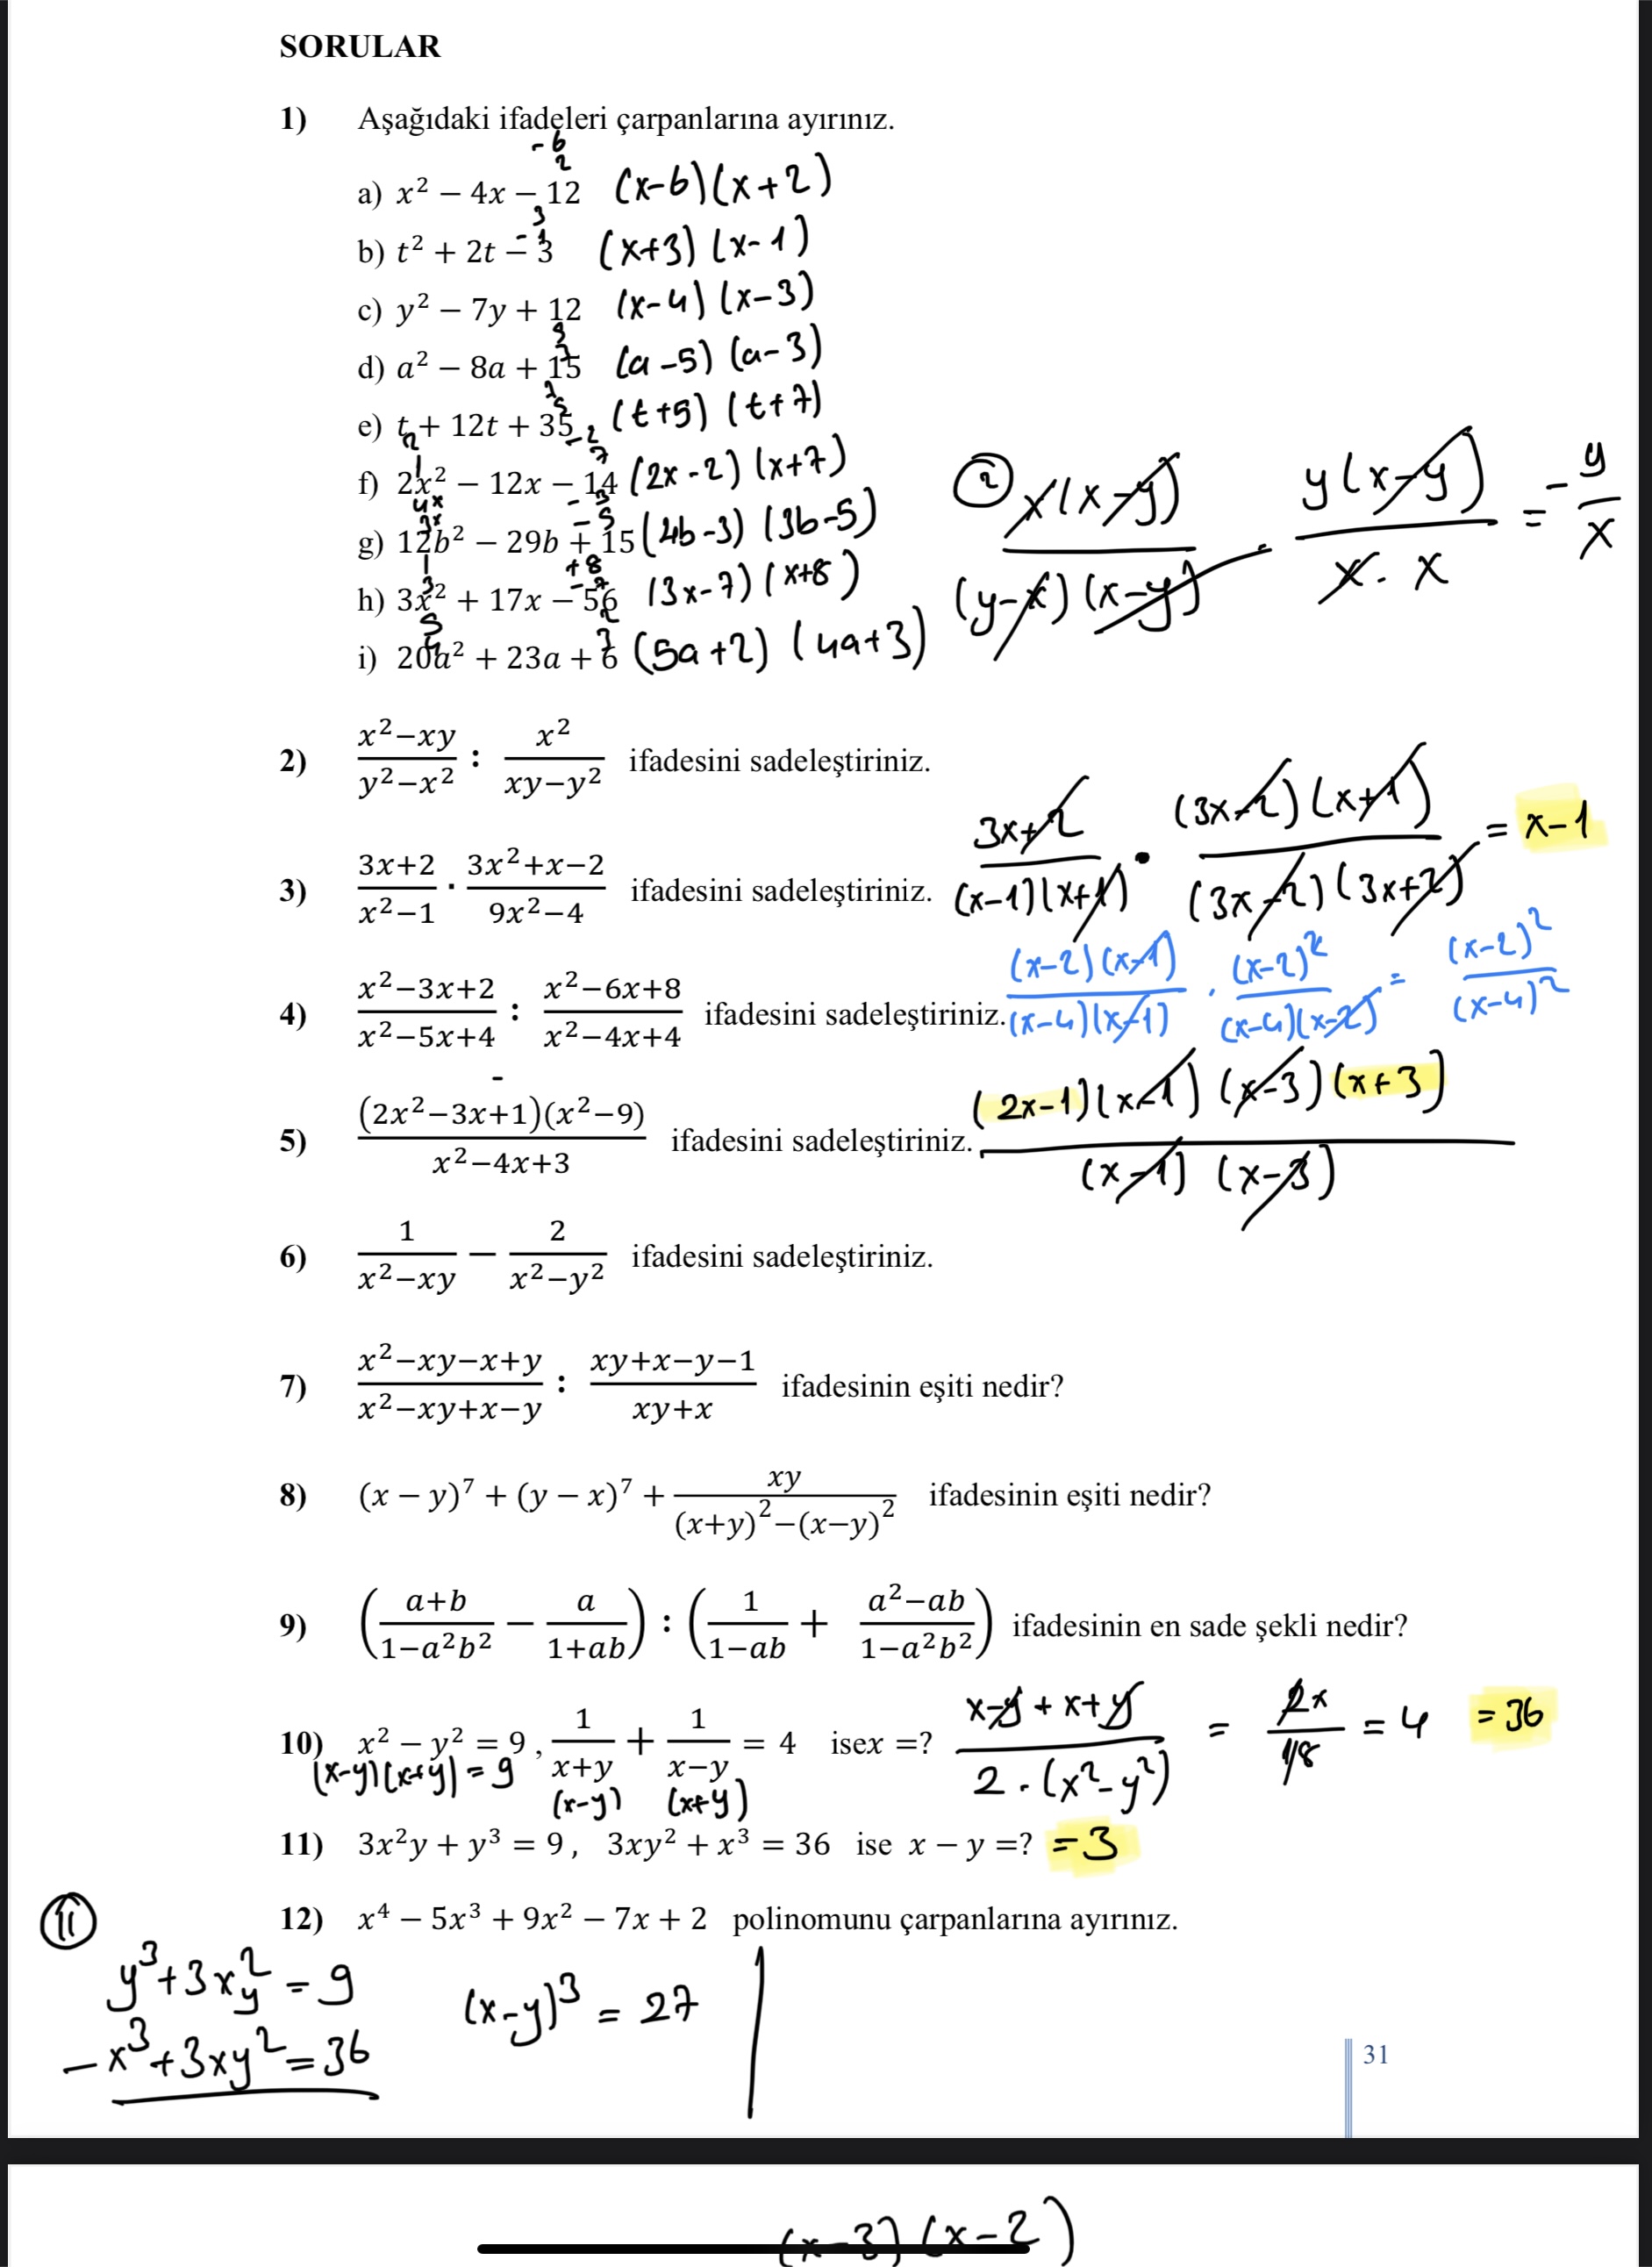 SORULAR
1) Aşağıdaki ifadeleri çarpanlarına ayırınız.
-6
2
a) x² − 4x − 12 (x-6)(x+2)
3
-1
b) t² + 2t − 3 (x+3)(x-1)
c) y² − 7y + 12 (x-4)(x-3)
d) a² − 8a + 15 (a-5)(a-3)
7
5
e) t + 12t + 35 (t+5)(t+7)
2
1
-2
7
f) 2x² − 12x − 14 (2x-2)(x+7)
4x
3x
-3
-5
g) 12b² − 29b + 15 (4b-3)(3b-5)
1
3
+8
-7
h) 3x² + 17x − 56 (3x-7)(x+8)
5
4
2
3
i) 20a² + 23a + 6 (5a+2)(4a+3)
② x(x-y) / (y-x)(x-y) · y(x-y) / x.x = -y/x
2) x²−xy / y²−x² : x² / xy−y² ifadesini sadeleştiriniz.
3) 3x+2 / x²−1 · 3x²+x−2 / 9x²−4 ifadesini sadeleştiriniz.
3x+2 / (x-1)(x+1) · (3x-2)(x+1) / (3x-2)(3x+2) = x-1
4) x²−3x+2 / x²−5x+4 : x²−6x+8 / x²−4x+4 ifadesini sadeleştiriniz.
(x-2)(x-1) / (x-4)(x-1) . (x-2)² / (x-4)(x-2) = (x-2)² / (x-4)²
5) (2x²−3x+1)(x²−9) / x²−4x+3 ifadesini sadeleştiriniz.
(2x-1)(x-1)(x-3)(x+3) / (x-1)(x-3)
6) 1 / x²−xy − 2 / x²−y² ifadesini sadeleştiriniz.
7) x²−xy−x+y / x²−xy+x−y : xy+x−y−1 / xy+x ifadesinin eşiti nedir?
8) (x − y)⁷ + (y − x)⁷ + xy / (x+y)²−(x−y)² ifadesinin eşiti nedir?
9) (a+b / 1−a²b² − a / 1+ab) : (1 / 1−ab + a²−ab / 1−a²b²) ifadesinin en sade şekli nedir?
10) x² − y² = 9 , 1 / x+y + 1 / x−y = 4 isex =?
(x-y)(x+y) = 9 (x-y) (x+y)
x-y+x+y / 2.(x²-y²) = 2x / 18 = 4 = 36
11) 3x²y + y³ = 9 , 3xy² + x³ = 36 ise x − y =? = 3
12) x⁴ − 5x³ + 9x² − 7x + 2 polinomunu çarpanlarına ayırınız.
⑪
y³+3x²y = 9
-x³+3xy² = 36
(x-y)³ = 27
31
(x-3)(x-2)